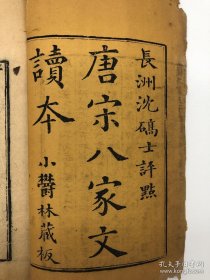 長洲沈礭士評點
唐宋八家文
讀本
小鬱林藏板